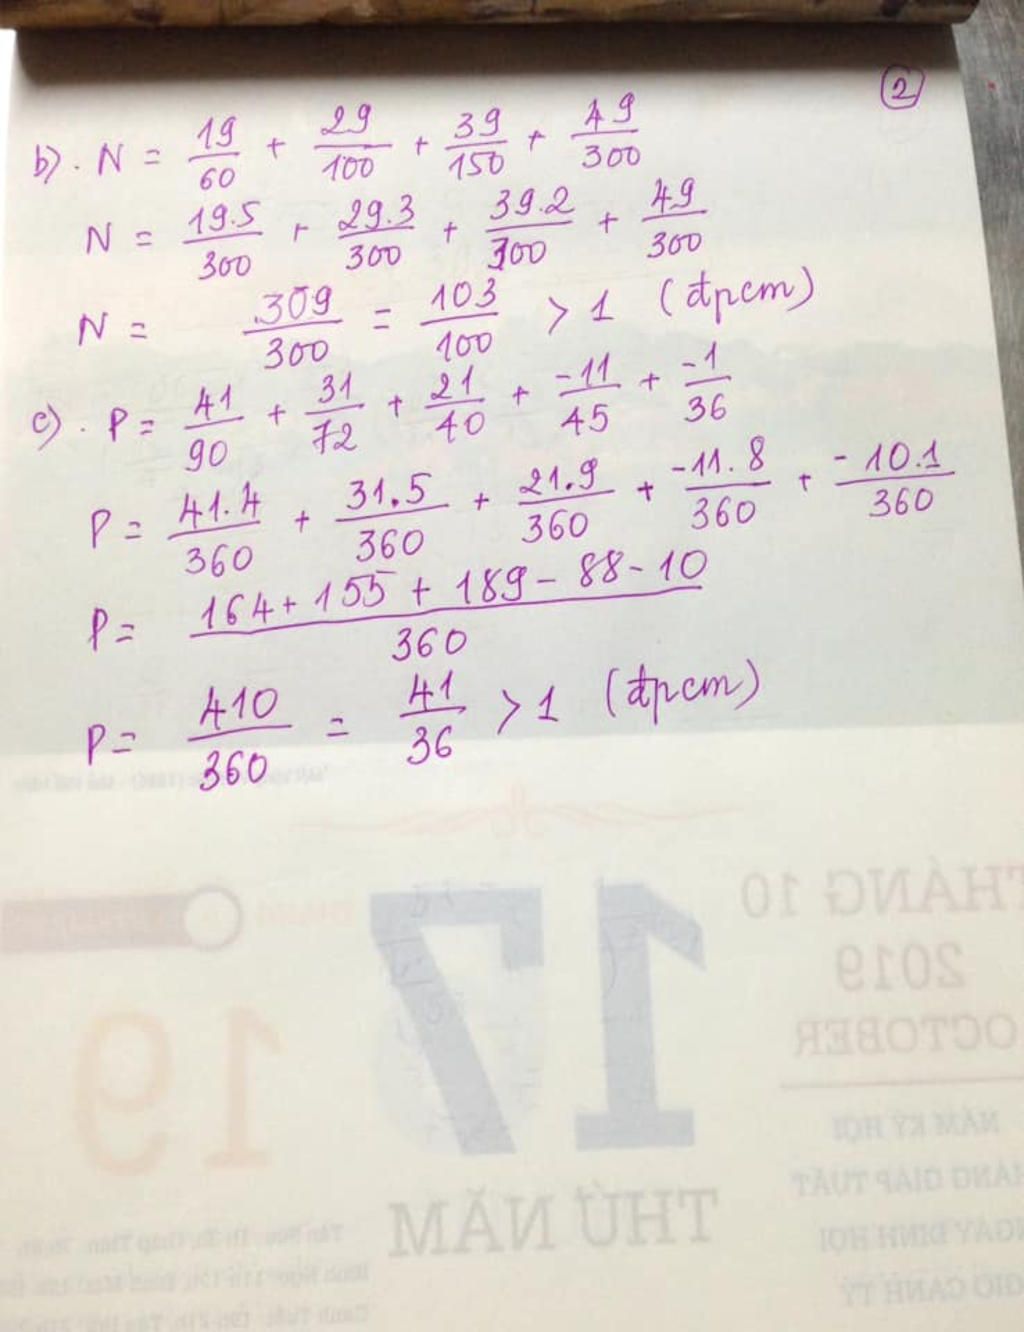 2
b). N = 19/60 + 29/100 + 39/150 + 49/300
N = 19.5/300 + 29.3/300 + 39.2/300 + 49/300
N = 309/300 = 103/100 > 1 (đpcm)
c). P = 41/90 + 31/72 + 21/40 + -11/45 + -1/36
P = 41.4/360 + 31.5/360 + 21.9/360 + -11.8/360 + -10.1/360
P = 164 + 155 + 189 - 88 - 10/360
P = 410/360 = 41/36 > 1 (đpcm)
THÁNG 10
2019
OCTOBER
17
19
NĂM KỶ HỢI
THÁNG GIÁP TUẤT
NGÀY ĐINH HỢI
GIỜ CANH TÝ
THỨ NĂM